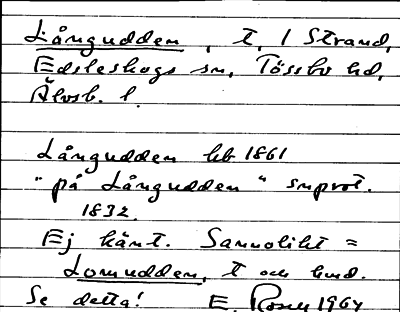 Långudden, t, i Strand,
Edsleskogs sn, Tössbo hd,
Älvsb. l.
Långudden hb 1861
"på Långudden" snprot.
1832.
Ej känt. Sannolikt =
Lomudden, t och hmd.
Se detta! E. Rosén 1964